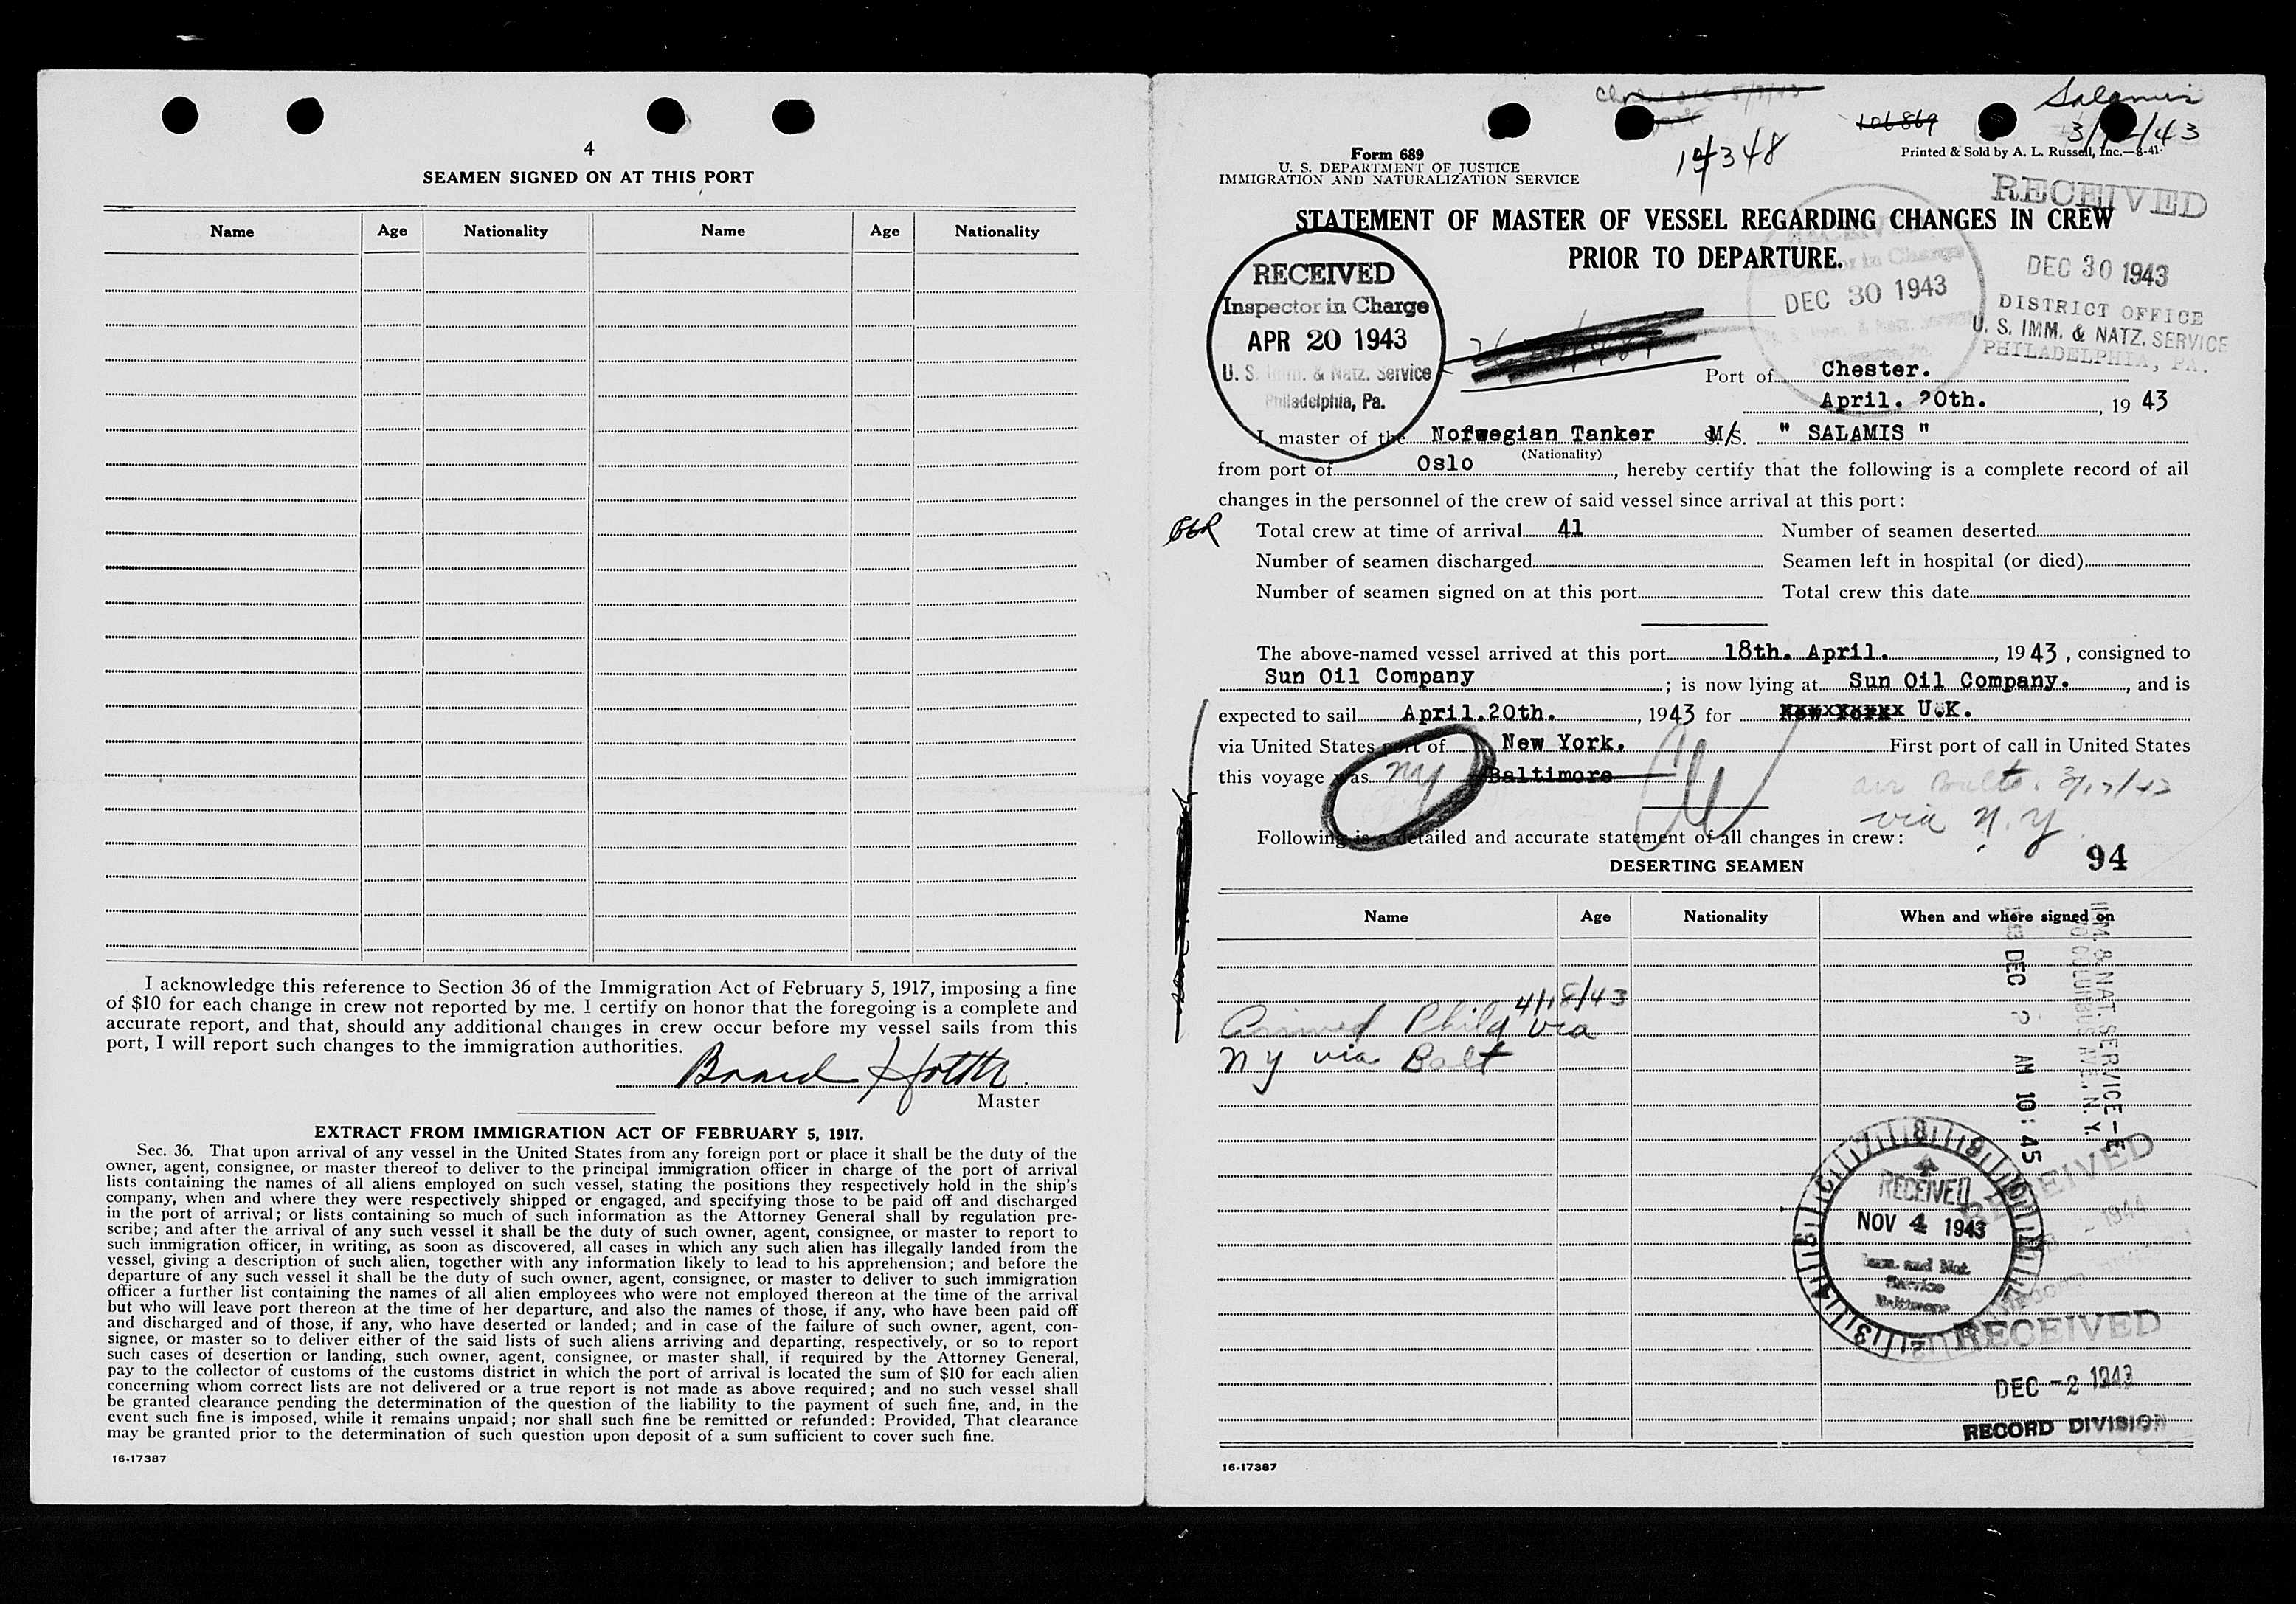 4
SEAMEN SIGNED ON AT THIS PORT
Name Age Nationality Name Age Nationality
I acknowledge this reference to Section 36 of the Immigration Act of February 5, 1917, imposing a fine
of $10 for each change in crew not reported by me. I certify on honor that the foregoing is a complete and
accurate report, and that, should any additional changes in crew occur before my vessel sails from this
port, I will report such changes to the immigration authorities.
Master
EXTRACT FROM IMMIGRATION ACT OF FEBRUARY 5, 1917.
Sec. 36. That upon arrival of any vessel in the United States from any foreign port or place it shall be the duty of the
owner, agent, consignee, or master thereof to deliver to the principal immigration officer in charge of the port of arrival
lists containing the names of all aliens employed on such vessel, stating the positions they respectively hold in the ship's
company, when and where they were respectively shipped or engaged, and specifying those to be paid off and discharged
in the port of arrival; or lists containing so much of such information as the Attorney General shall by regulation pre-
scribe; and after the arrival of any such vessel it shall be the duty of such owner, agent, consignee, or master to report to
such immigration officer, in writing, as soon as discovered, all cases in which any such alien has illegally landed from the
vessel, giving a description of such alien, together with any information likely to lead to his apprehension; and before the
departure of any such vessel it shall be the duty of such owner, agent, consignee, or master to deliver to such immigration
officer a further list containing the names of all alien employees who were not employed thereon at the time of the arrival
but who will leave port thereon at the time of her departure, and also the names of those, if any, who have been paid off
and discharged and of those, if any, who have deserted or landed; and in case of the failure of such owner, agent, con-
signee, or master so to deliver either of the said lists of such aliens arriving and departing, respectively, or so to report
such cases of desertion or landing, such owner, agent, consignee, or master shall, if required by the Attorney General,
pay to the collector of customs of the customs district in which the port of arrival is located the sum of $10 for each alien
concerning whom correct lists are not delivered or a true report is not made as above required; and no such vessel shall
be granted clearance pending the determination of the question of the liability to the payment of such fine, and, in the
event such fine is imposed, while it remains unpaid; nor shall such fine be remitted or refunded: Provided, That clearance
may be granted prior to the determination of such question upon deposit of a sum sufficient to cover such fine.
16-17387
Salamis
106869
14348
Form 689
U. S. DEPARTMENT OF JUSTICE
IMMIGRATION AND NATURALIZATION SERVICE
Printed & Sold by A. L. Russell, Inc.—8-41
RECEIVED
DEC 30 1943
DISTRICT OFFICE
U. S. IMM. & NATZ. SERVICE
PHILADELPHIA, PA.
STATEMENT OF MASTER OF VESSEL REGARDING CHANGES IN CREW
PRIOR TO DEPARTURE.
RECEIVED
Inspector in Charge
APR 20 1943
U. S. Imm. & Natz. Service
Philadelphia, Pa.
DEC 30 1943
Port of Chester.
April. 20th., 19 43
I, master of the Norwegian Tanker M/S. " SALAMIS "
(Nationality)
from port of Oslo, hereby certify that the following is a complete record of all
changes in the personnel of the crew of said vessel since arrival at this port:
Total crew at time of arrival 41 Number of seamen deserted
Number of seamen discharged Seamen left in hospital (or died)
Number of seamen signed on at this port Total crew this date
The above-named vessel arrived at this port 18th. April., 1943, consigned to
Sun Oil Company; is now lying at Sun Oil Company., and is
expected to sail April.20th., 1943 for New York U.K.
via United States port of New York. First port of call in United States
this voyage was NY Baltimore
via N.Y.
Following is a detailed and accurate statement of all changes in crew:
94
DESERTING SEAMEN
Name Age Nationality When and where signed on
Arrived Phila 4/18/43 via
NY via Balt
IMM. & NAT. SERVICE
70 COLUMBUS AVE., N.Y.
DEC 2 AM 10:45
RECEIVED
NOV 4 1943
Imm. and Nat.
Service
Baltimore
RECEIVED
DEC -2 1943
RECORD DIVISION
16-17387